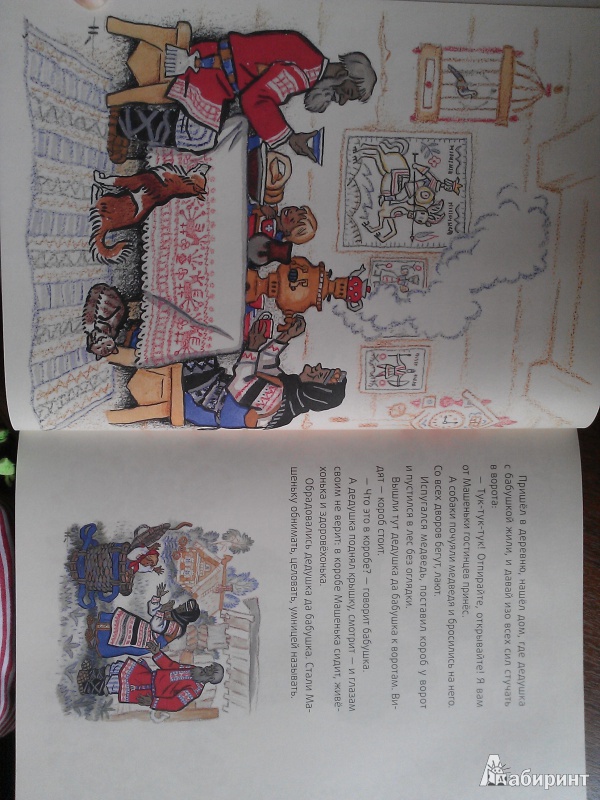 Пришёл в деревню, нашёл дом, где дедушка
с бабушкой жили, и давай изо всех сил стучать
в ворота:
— Тук-тук-тук! Отпирайте, открывайте! Я вам
от Машеньки гостинцев принёс.
А собаки почуяли медведя и бросились на него.
Со всех дворов бегут, лают.
Испугался медведь, поставил короб у ворот
и пустился в лес без оглядки.
Вышли тут дедушка да бабушка к воротам. Ви-
дят — короб стоит.
— Что это в коробе? — говорит бабушка.
А дедушка поднял крышку, смотрит — и глазам
своим не верит: в коробе Машенька сидит, живё-
хонька и здоровёхонька.
Обрадовались дедушка да бабушка. Стали Ма-
шеньку обнимать, целовать, умницей называть.
Лабиринт